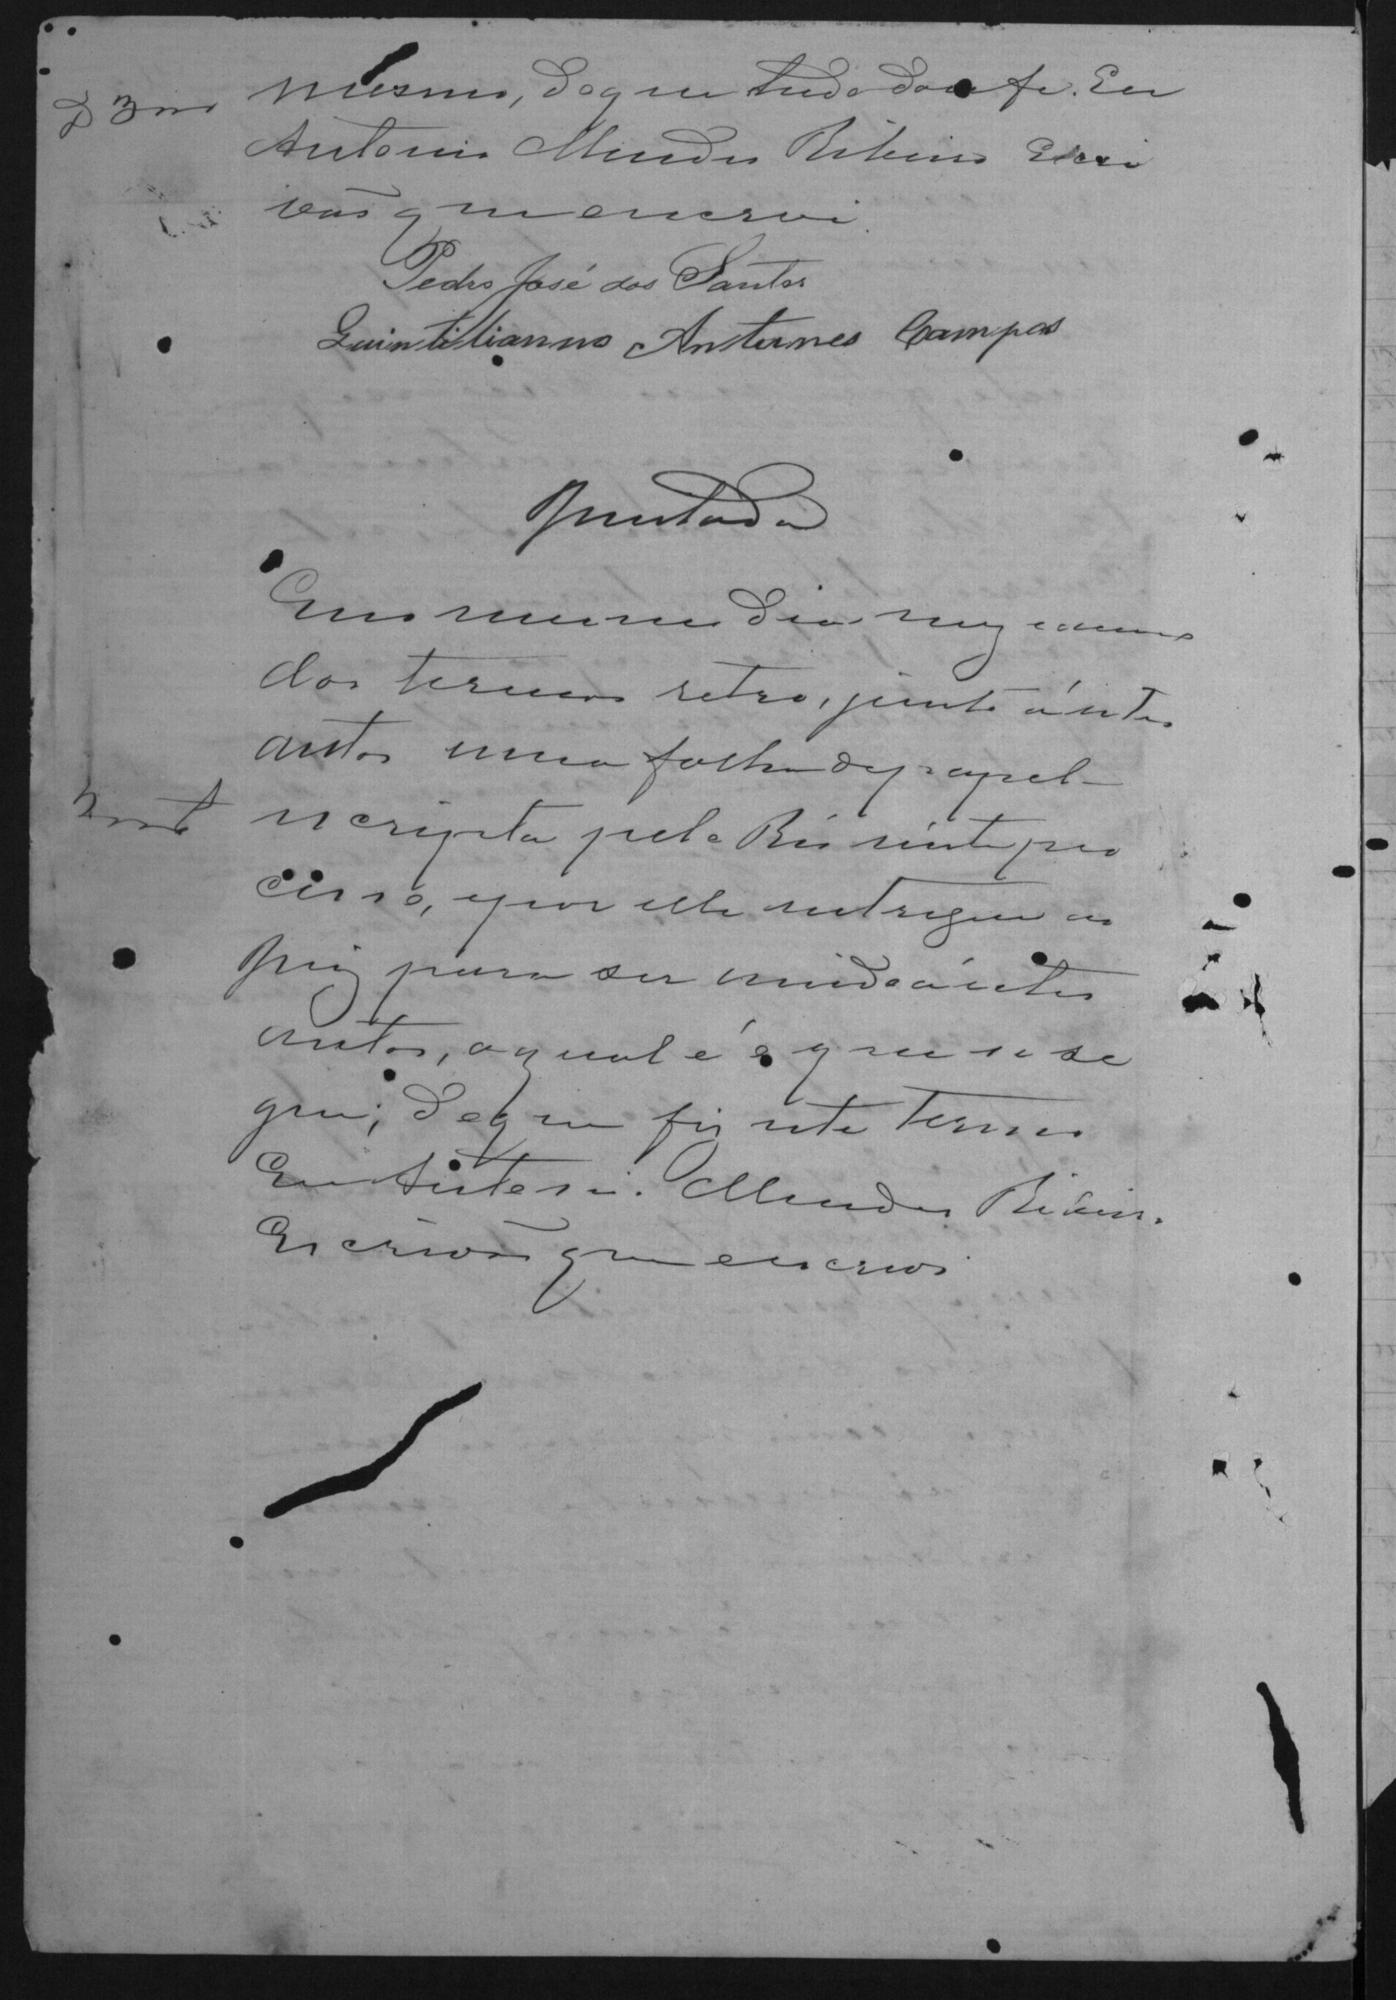 mesmo, de que tudo dou fe. Eu
Antonio Mendes Ribeiro Escri
vão que escrevi.
Pedro José dos Santos
Quintilianno Antunes Campos
Juntada
E no mesmo dia mez e anno
dos termos retro, junto á estes
autos uma folha de papel
escripta pelo Réo neste pro
cesso, e por elle entregue ao
Juiz para ser unida á estes
autos, a qual é a que se se
gue; de que fiz este termo
Eu Antonio Mendes Ribeiro
Escrivão que escrevi